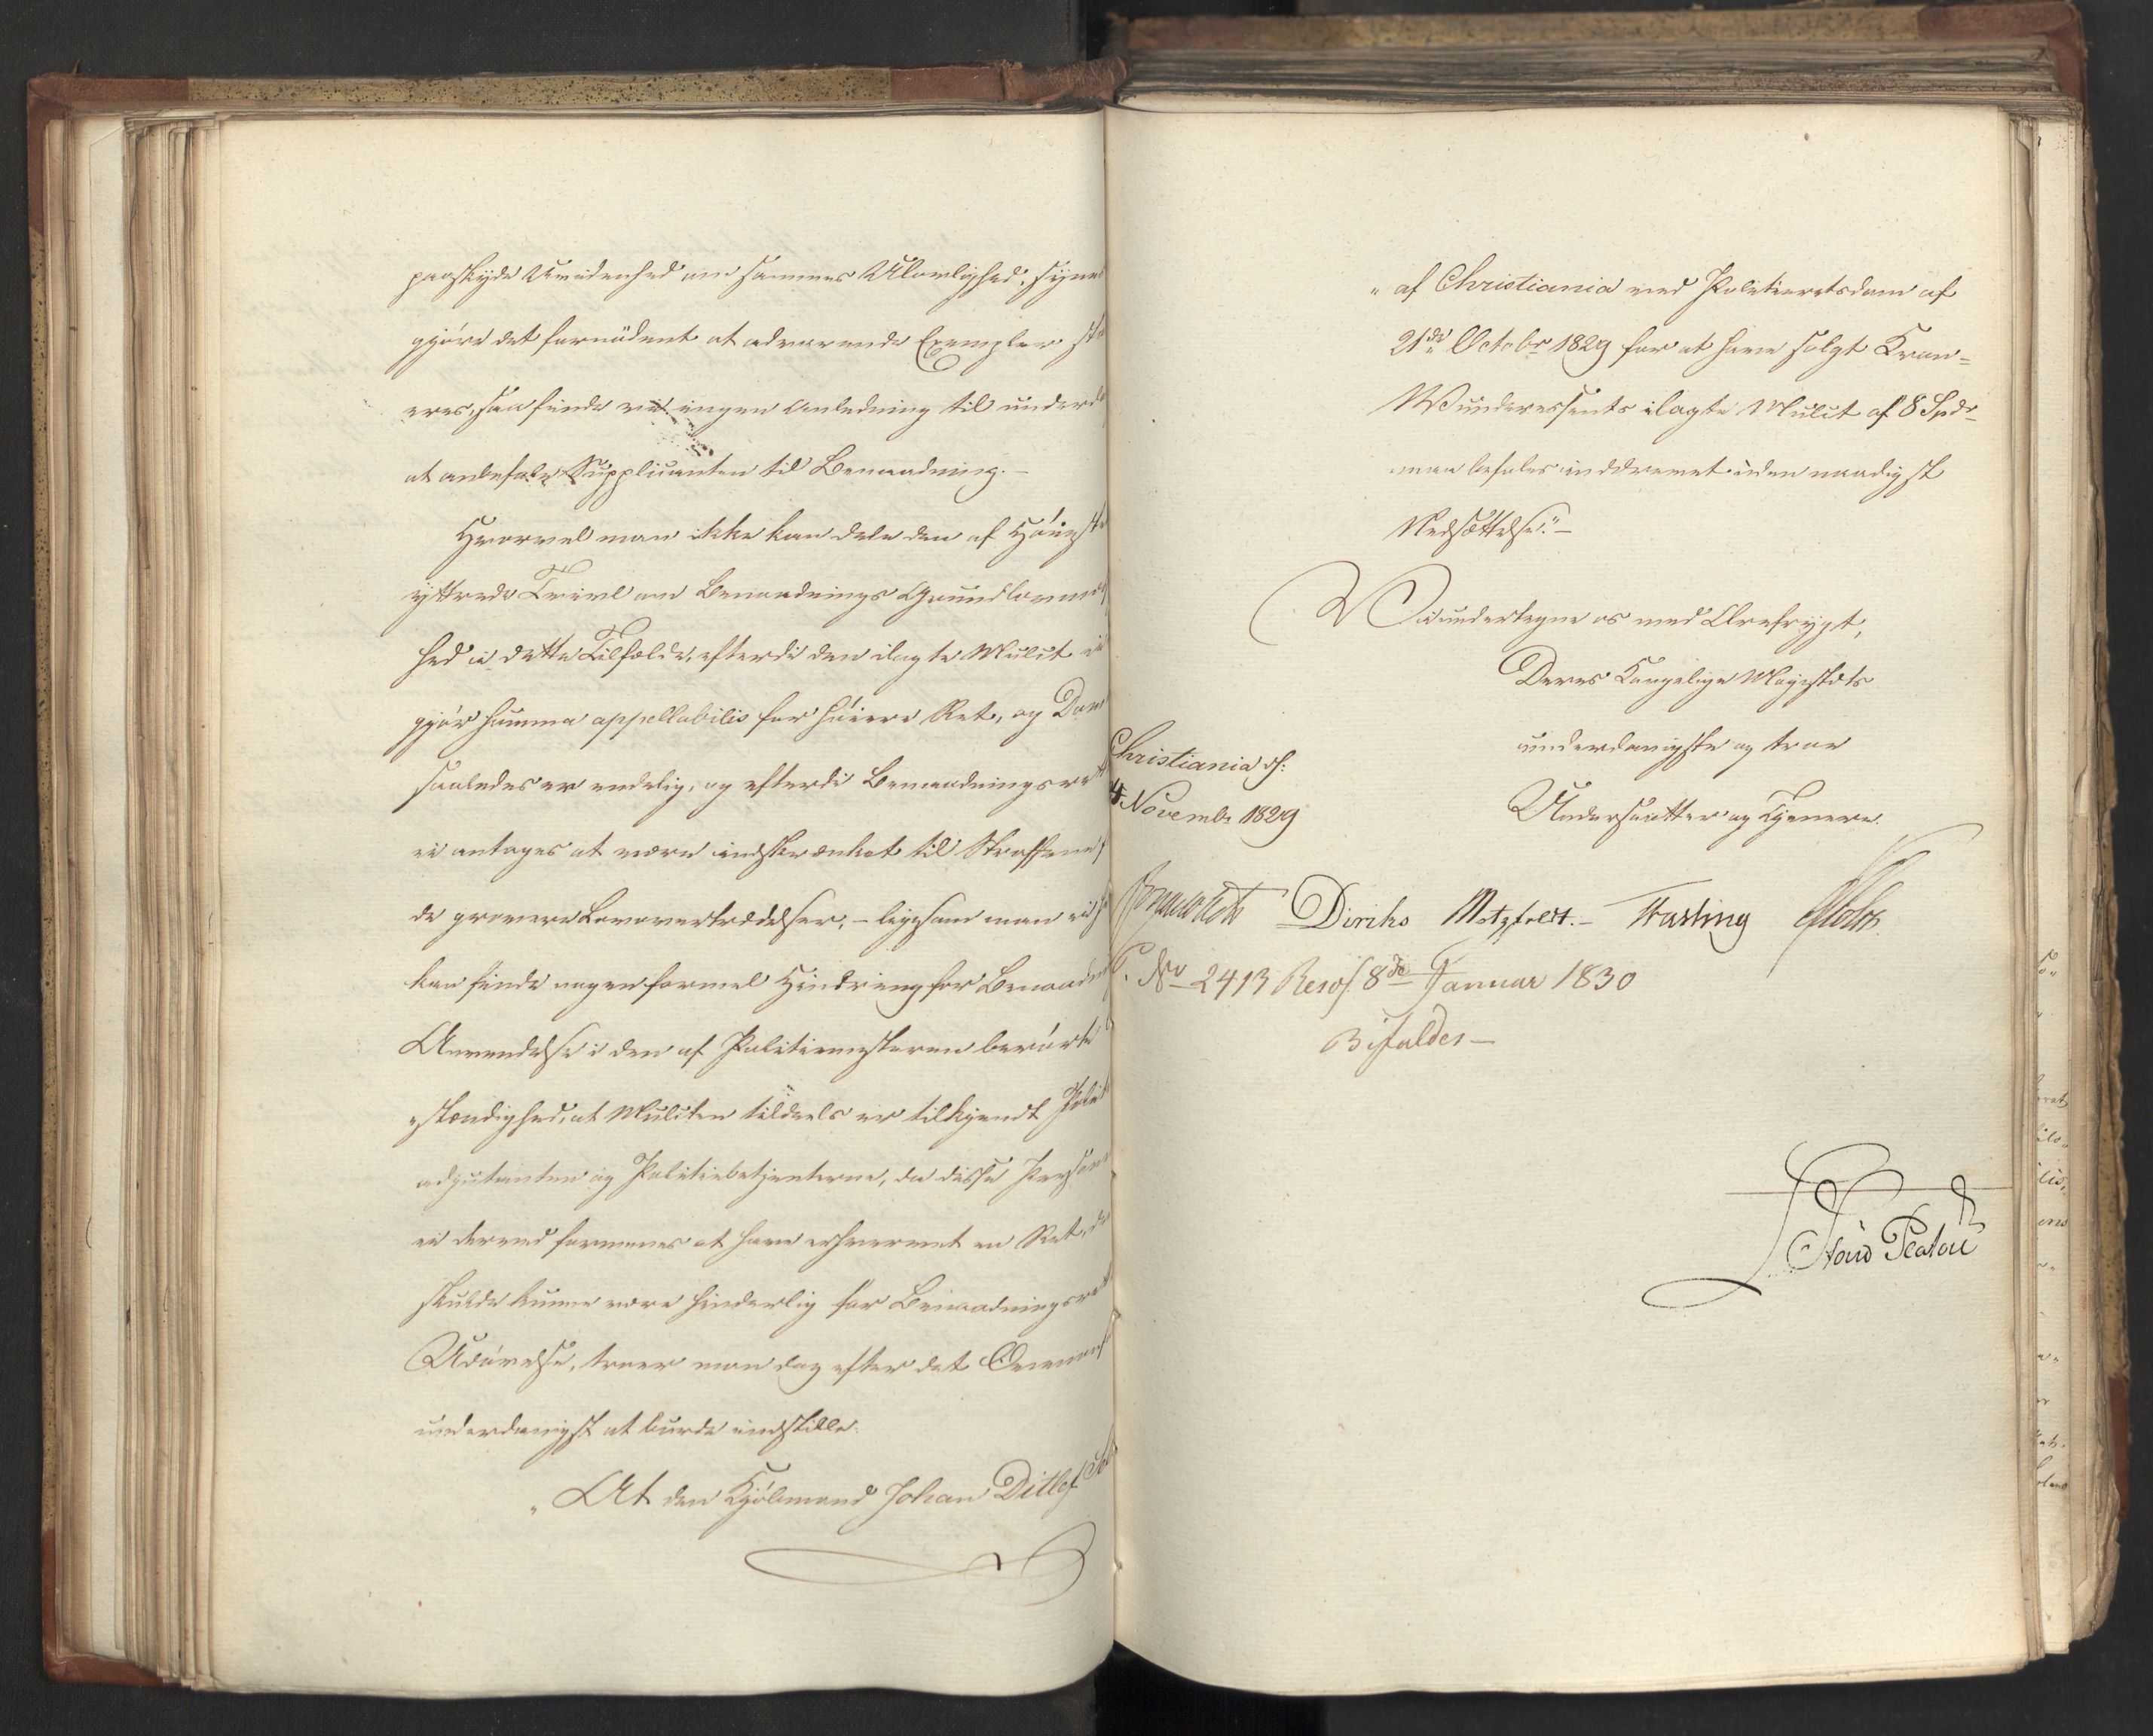 paaskyde Uvidenhed om sammes Ulovlighed, synes
gjøre det fornødent at advarende Exempler sta
eres, saa finde vi ingen Anledning til underd
at anbefale Supplicanten til Benaadning. –
Hvorvel man ikke kan dele den af Høieste
yttrede Tvivl om Benaadnings Grundlovmæs
hed i dette Tilfælde, efterdi den ilagte Mulct ei
gjør summa appellabilis for høiere Ret, og Dom
saaledes er endelig, og efterdi Benaadningsret
ei antages at være indskrænket til Straffene f
de grovere Lovovertrædelser, – ligesom man ei h
kan finde nogen formel Hindring for Benaadn
Anvendelse i den af Politiemesteren berørte
stændighed, at Mulcten tildeels er tilkjendt Polit
adjutanten og Politiebetjenterne, da disse Person
ei derved formenes at have erhvervet en Ret, de
skulde kunne være hinderlig for Benaadningsre
Udøvelse, troer man dog efter det Ovenanf
underdanigst at burde indstille:
„At den Kjøbmand Johan Ditlef
„af Christiania ved Politieretsdom af
21de Octobr 1829 for at have solgt Kron=
Wunderessents ilagte Mulct af 8 Spdr
maa befales inddrevet uden naadigst
Nedsættelse." –
Vi undertegne os med Ærefrygt,
Deres Kongelige Majestæts
underdanigste og troe
Undersaatter og Tjenere.
Christiania d:
4 Novembr 1829
Diriks Motzfeldt. – Fasting
No 2413 Resol 8de Januar 1830
Bifaldes –